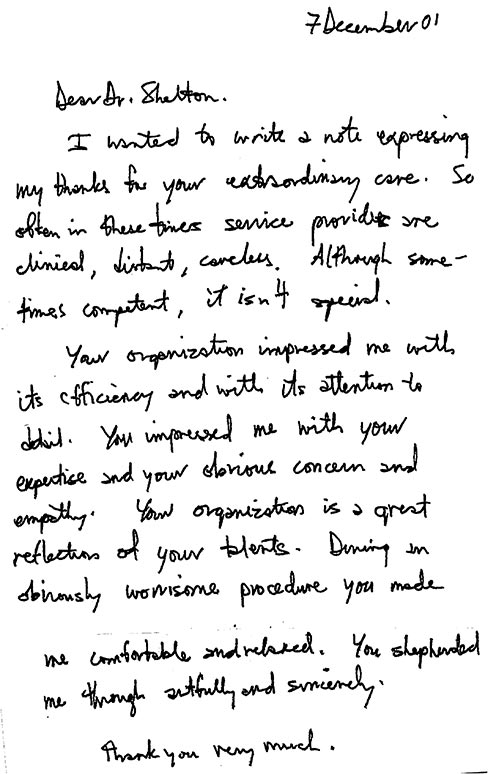 7 December 01
Dear Dr. Shelton.
I wanted to write a note expressing
my thanks for your extraordinary care. So
often in these times service providers are
clinical, distant, careless. Although some-
times competent, it isn't special.
Your organization impressed me with
its efficiency and with its attention to
detail. You impressed me with your
expertise and your obvious concern and
empathy. Your organization is a great
reflection of your talents. During an
obviously worrisome procedure you made
me comfortable and relaxed. You shepherded
me through artfully and sincerely.
Thank you very much.